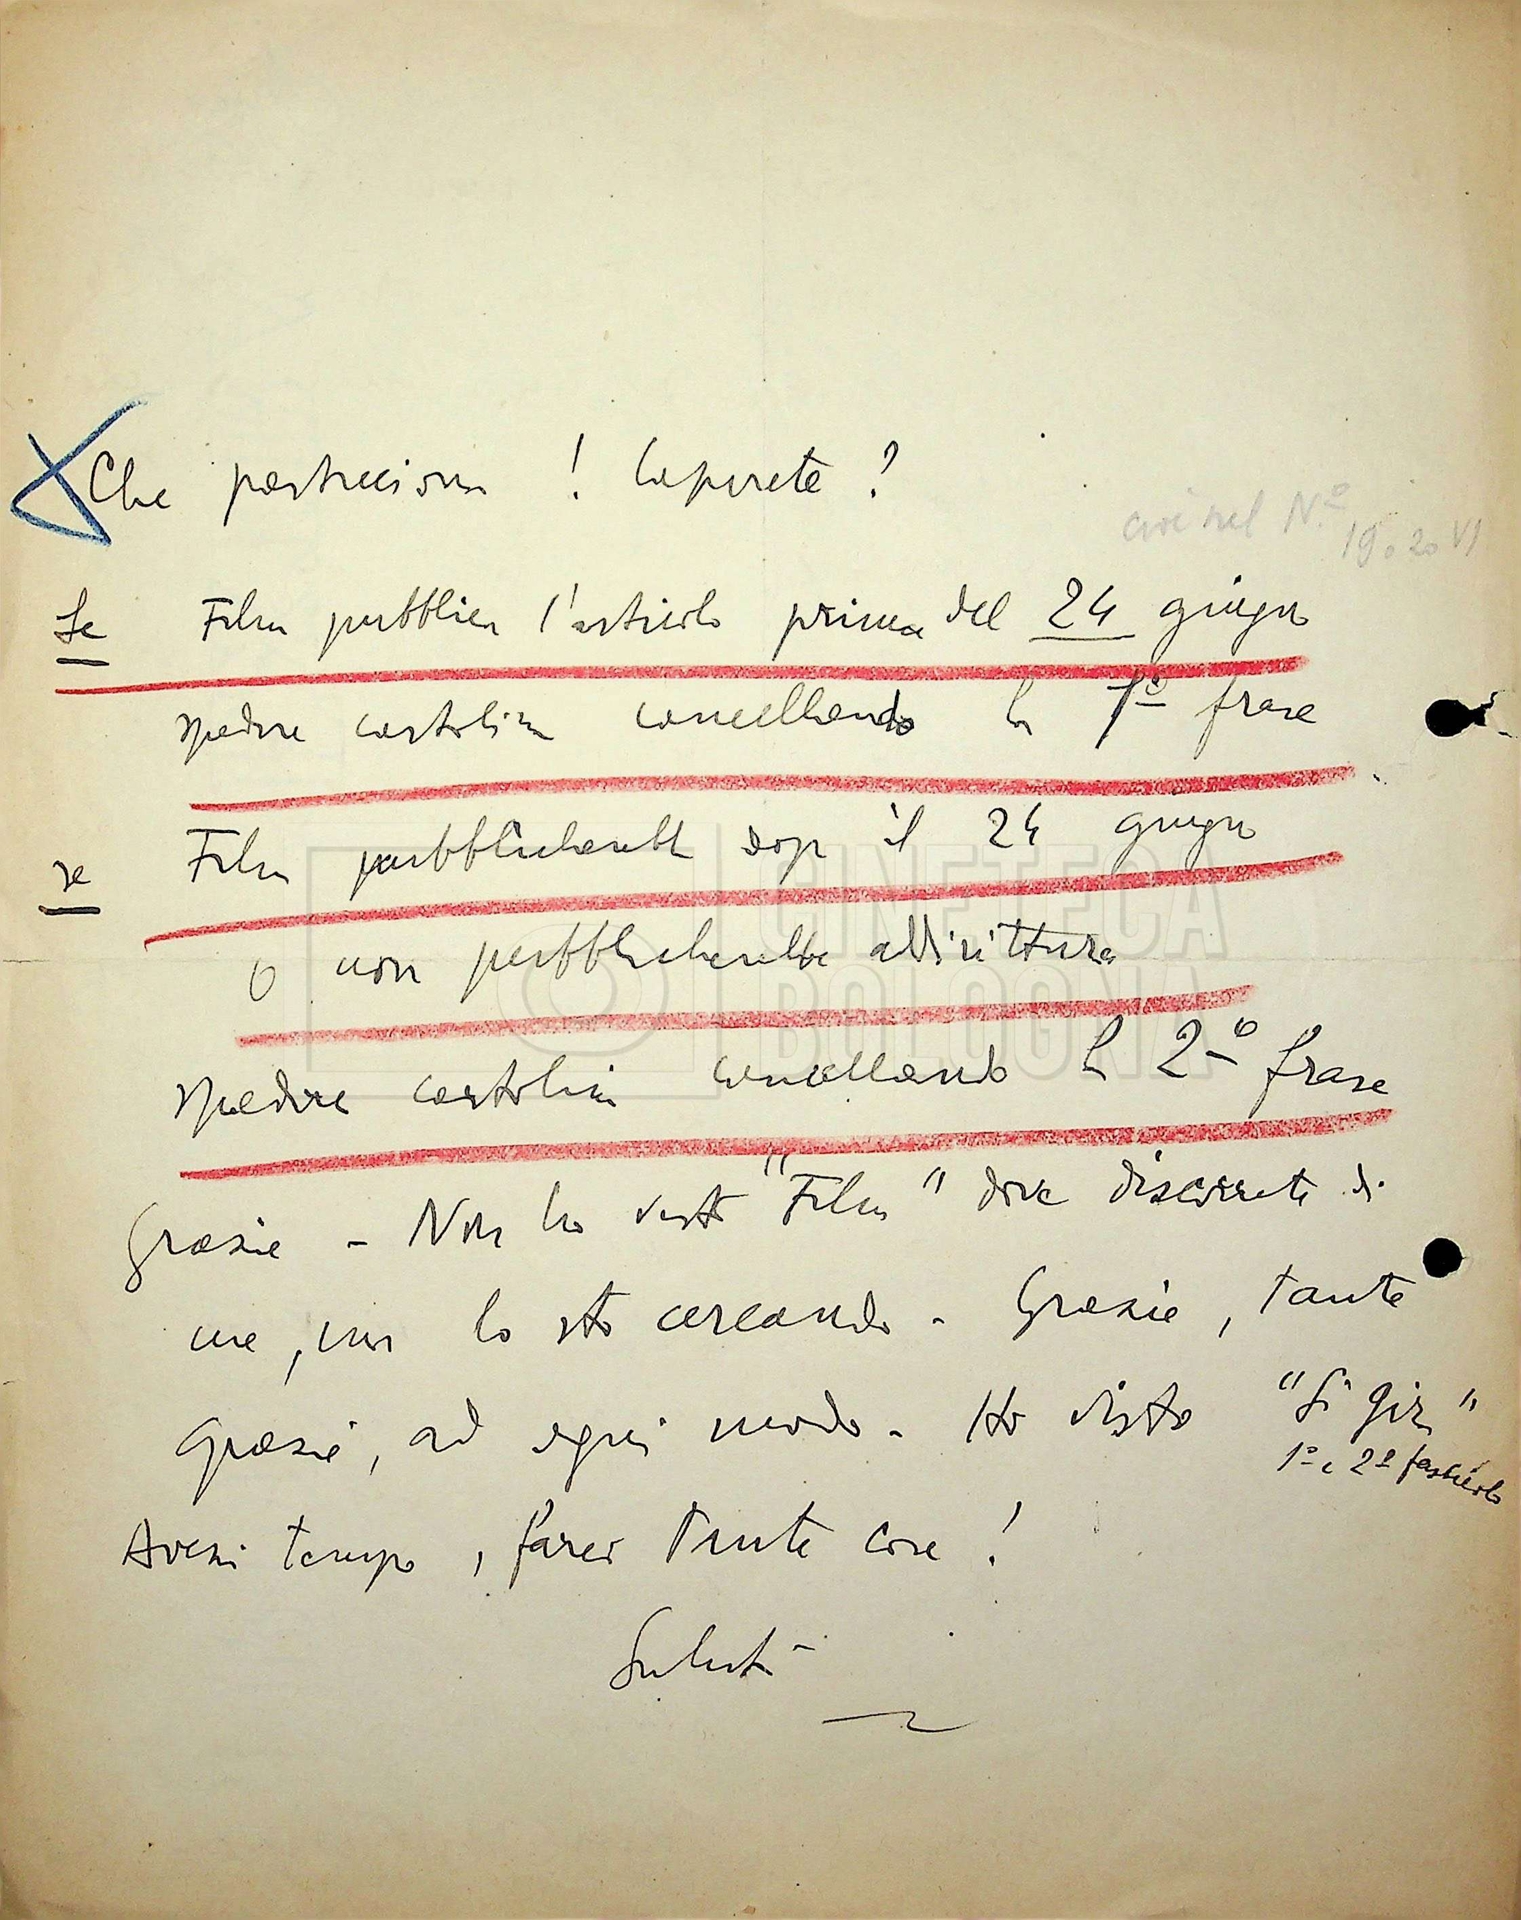 Che pasticcione ! Capirete ?
cioè nel N.º
19 o 20 VI
Se Film pubblica l'articolo prima del 24 giugno
spedire cartolina cancellando la 1ª frase
se Film pubblicherebbe dopo il 24 giugno
o non pubblicherebbe addirittura
spedire cartolina cancellando la 2ª frase
Grazie - Non ho visto "Film" dove discorrete di
me, ma lo sto cercando - Grazie, tante
grazie, ad ogni modo - Ho visto "Si gira"
1º e 2º fascicolo
Avessi tempo, farei tante cose !
Saluti -
CINETECA
BOLOGNA